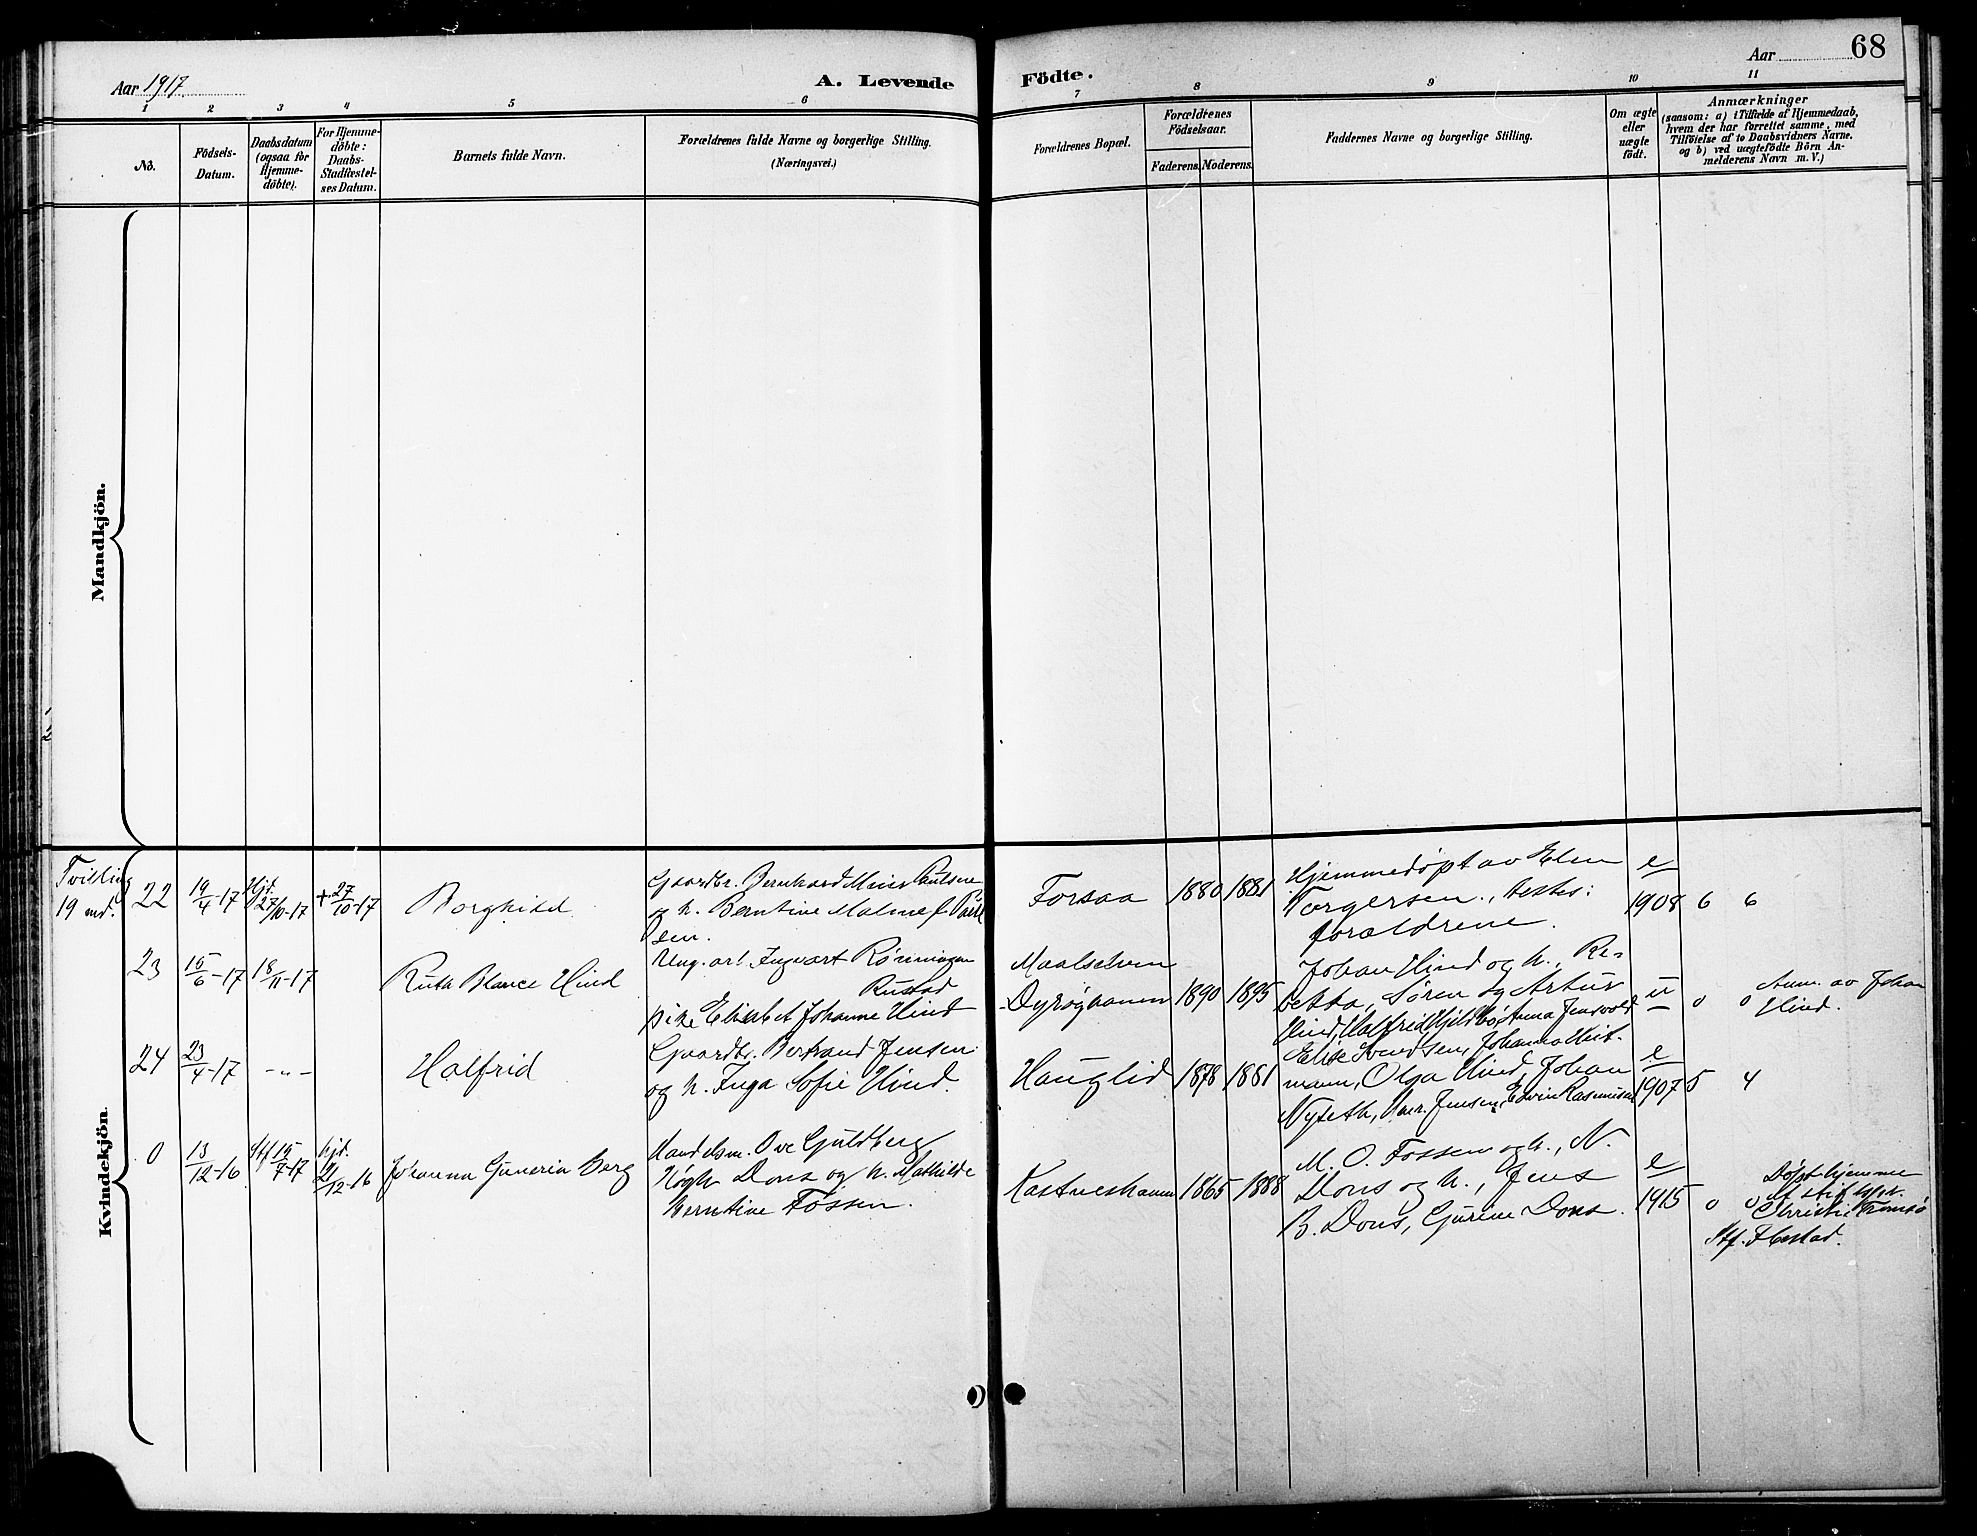 68
Aar 1917. A. Levende Födte. Aar
1 2 3 4 5 6 7 8 9 10 11
No.
Födsels-Datum.
Daabsdatum (ogsaa for Hjemme-döbte).
For Hjemme-döbte: Daabs-Stadfæstel-ses Datum.
Barnets fulde Navn.
Forældrenes fulde Navne og borgerlige Stilling.
(Næringsvei.)
Forældrenes Bopæl.
Forældrenes Födselsaar.
Faderens. Moderens.
Faddernes Navne og borgerlige Stilling.
Om ægte eller uægte födt.
Anmærkninger
(saasom: a) i Tilfælde af Hjemmedaab,
hvem der har forrettet samme, med
Tilföielse af to Daabsvidners Navne.
og b) ved uægtefödte Börn An-
melderens Navn m. V.)
Mandkjön.
Kvindekjön.
Tvilling
19 md.
22 19/4-17 Hjd. 27/10-17 + 27/10-17 Borghild
Gaardbr. Bernhard
og h. Berntine
Forsaa 1880 1881
Hjemmedøpt av Elen
Torgersen,
forældrene.
e 1908 6 6
23 15/6-17 18/11-17 Ruth Blance Hind
Ung. arb. Ingvart Rønningen
Rustad
pike Elisabet Johanne Hind
Maalselven
Dyrøyhavn 1890 1895
Johan Hind og h., Re-
bekka, Søren og Artur
Hind, Halfrid Anna
u 0 0 Anm. av Johan
Hind.
24 23/4-17 -"- Halfrid
Gaardbr. Bertrand Jensen
og h. Inga Sofie Hind.
Hauglid 1878 1881
Elise Svendsen, Johanna
Olga Hind, Johan
Jensen, Edvin Rasmussen
e 1907 5 4
0 13/12-16 Stf 15/7-17 hjd. 21/12-16 Johanna Guneria Berg
Handelsm. Ove Guldberg
Høgh Dons og h. Mathilde
Berntine Fossen.
Kastneshavn 1865 1888
M. O. Fossen og h., N.
Dons og h., Jens
B. Dons, Gurine Dons.
e 1915 0 0
Døpt hjemme
af
Christie Tromsø
Stf. Ibestad.